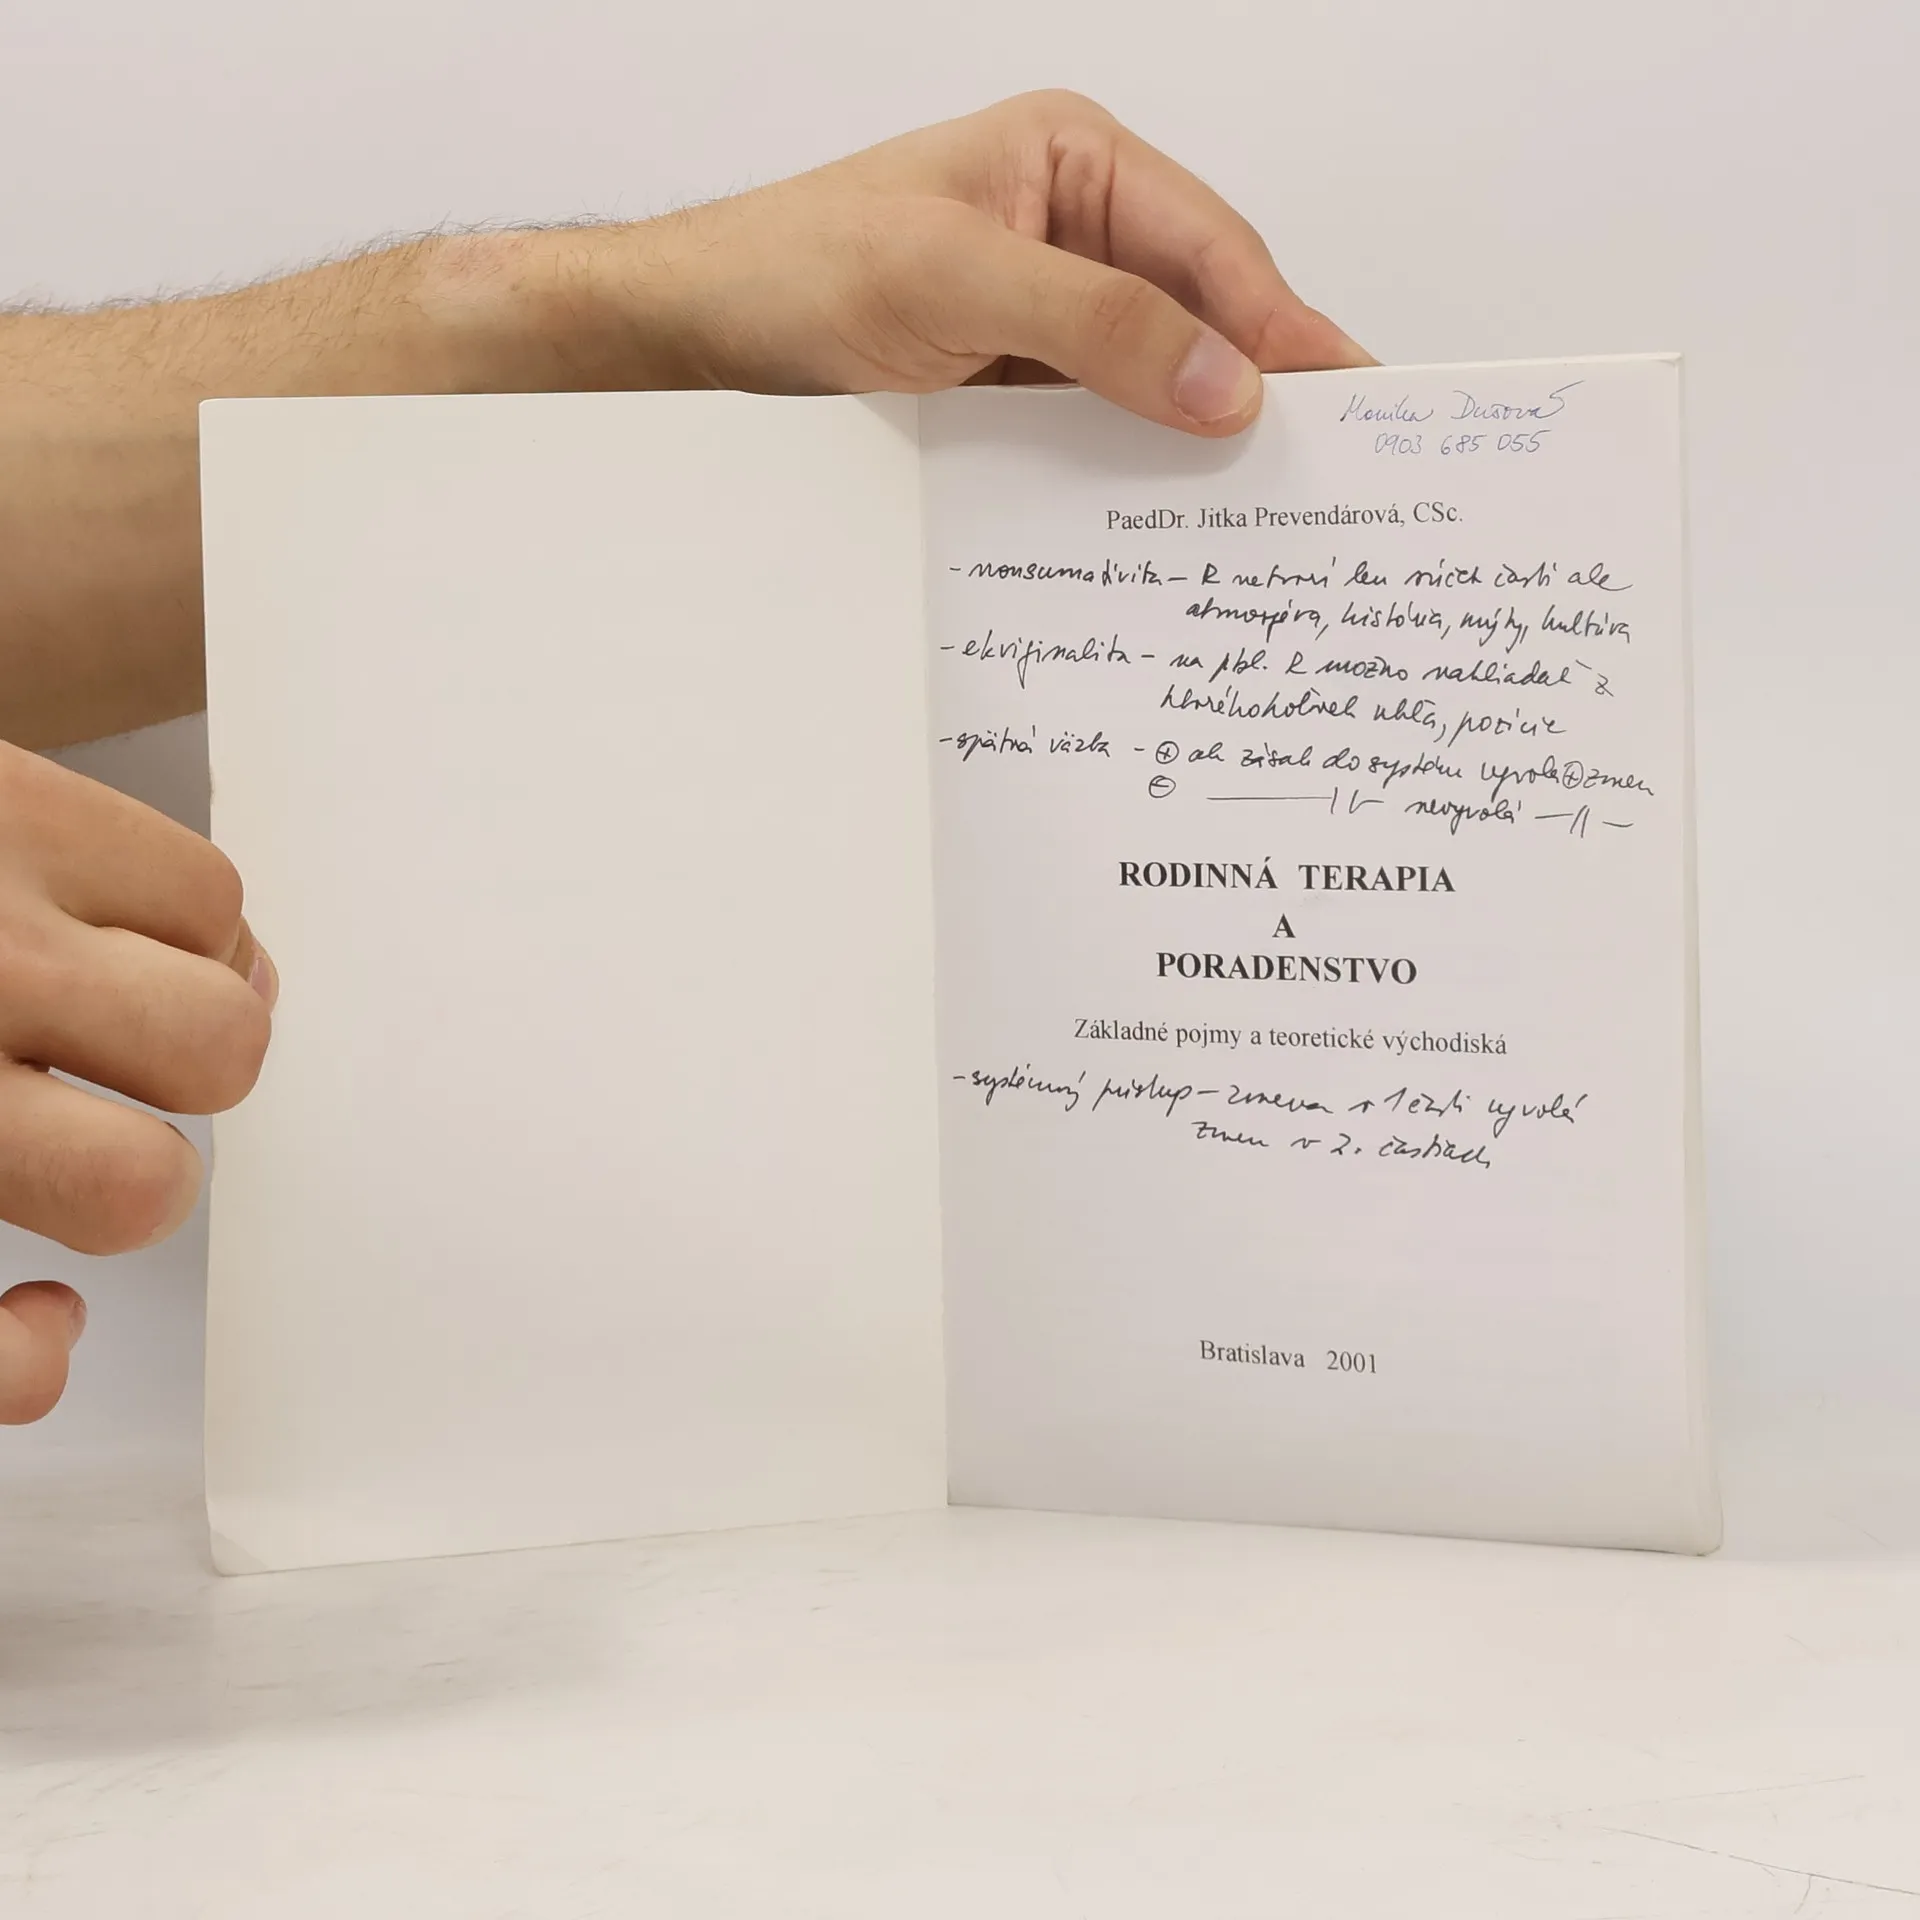 Monika Dušová
0903 685 055
PaedDr. Jitka Prevendárová, CSc.
- nonsumativita – R netvorí len súčet častí ale
atmosféra, história, mýty, kultúra
- ekvifinalita – na pbl. R možno nahliadať z
ktoréhokoľvek uhla, pozície
- spätná väzba - ⊕ ak zásah do systému vyvolá ⊕ zmen
⊖ ——— || — nevyvolá — || —
RODINNÁ TERAPIA
A
PORADENSTVO
Základné pojmy a teoretické východiská
- systémový prístup – zmena v 1 časti vyvolá
zmen v 2. častiach
Bratislava 2001